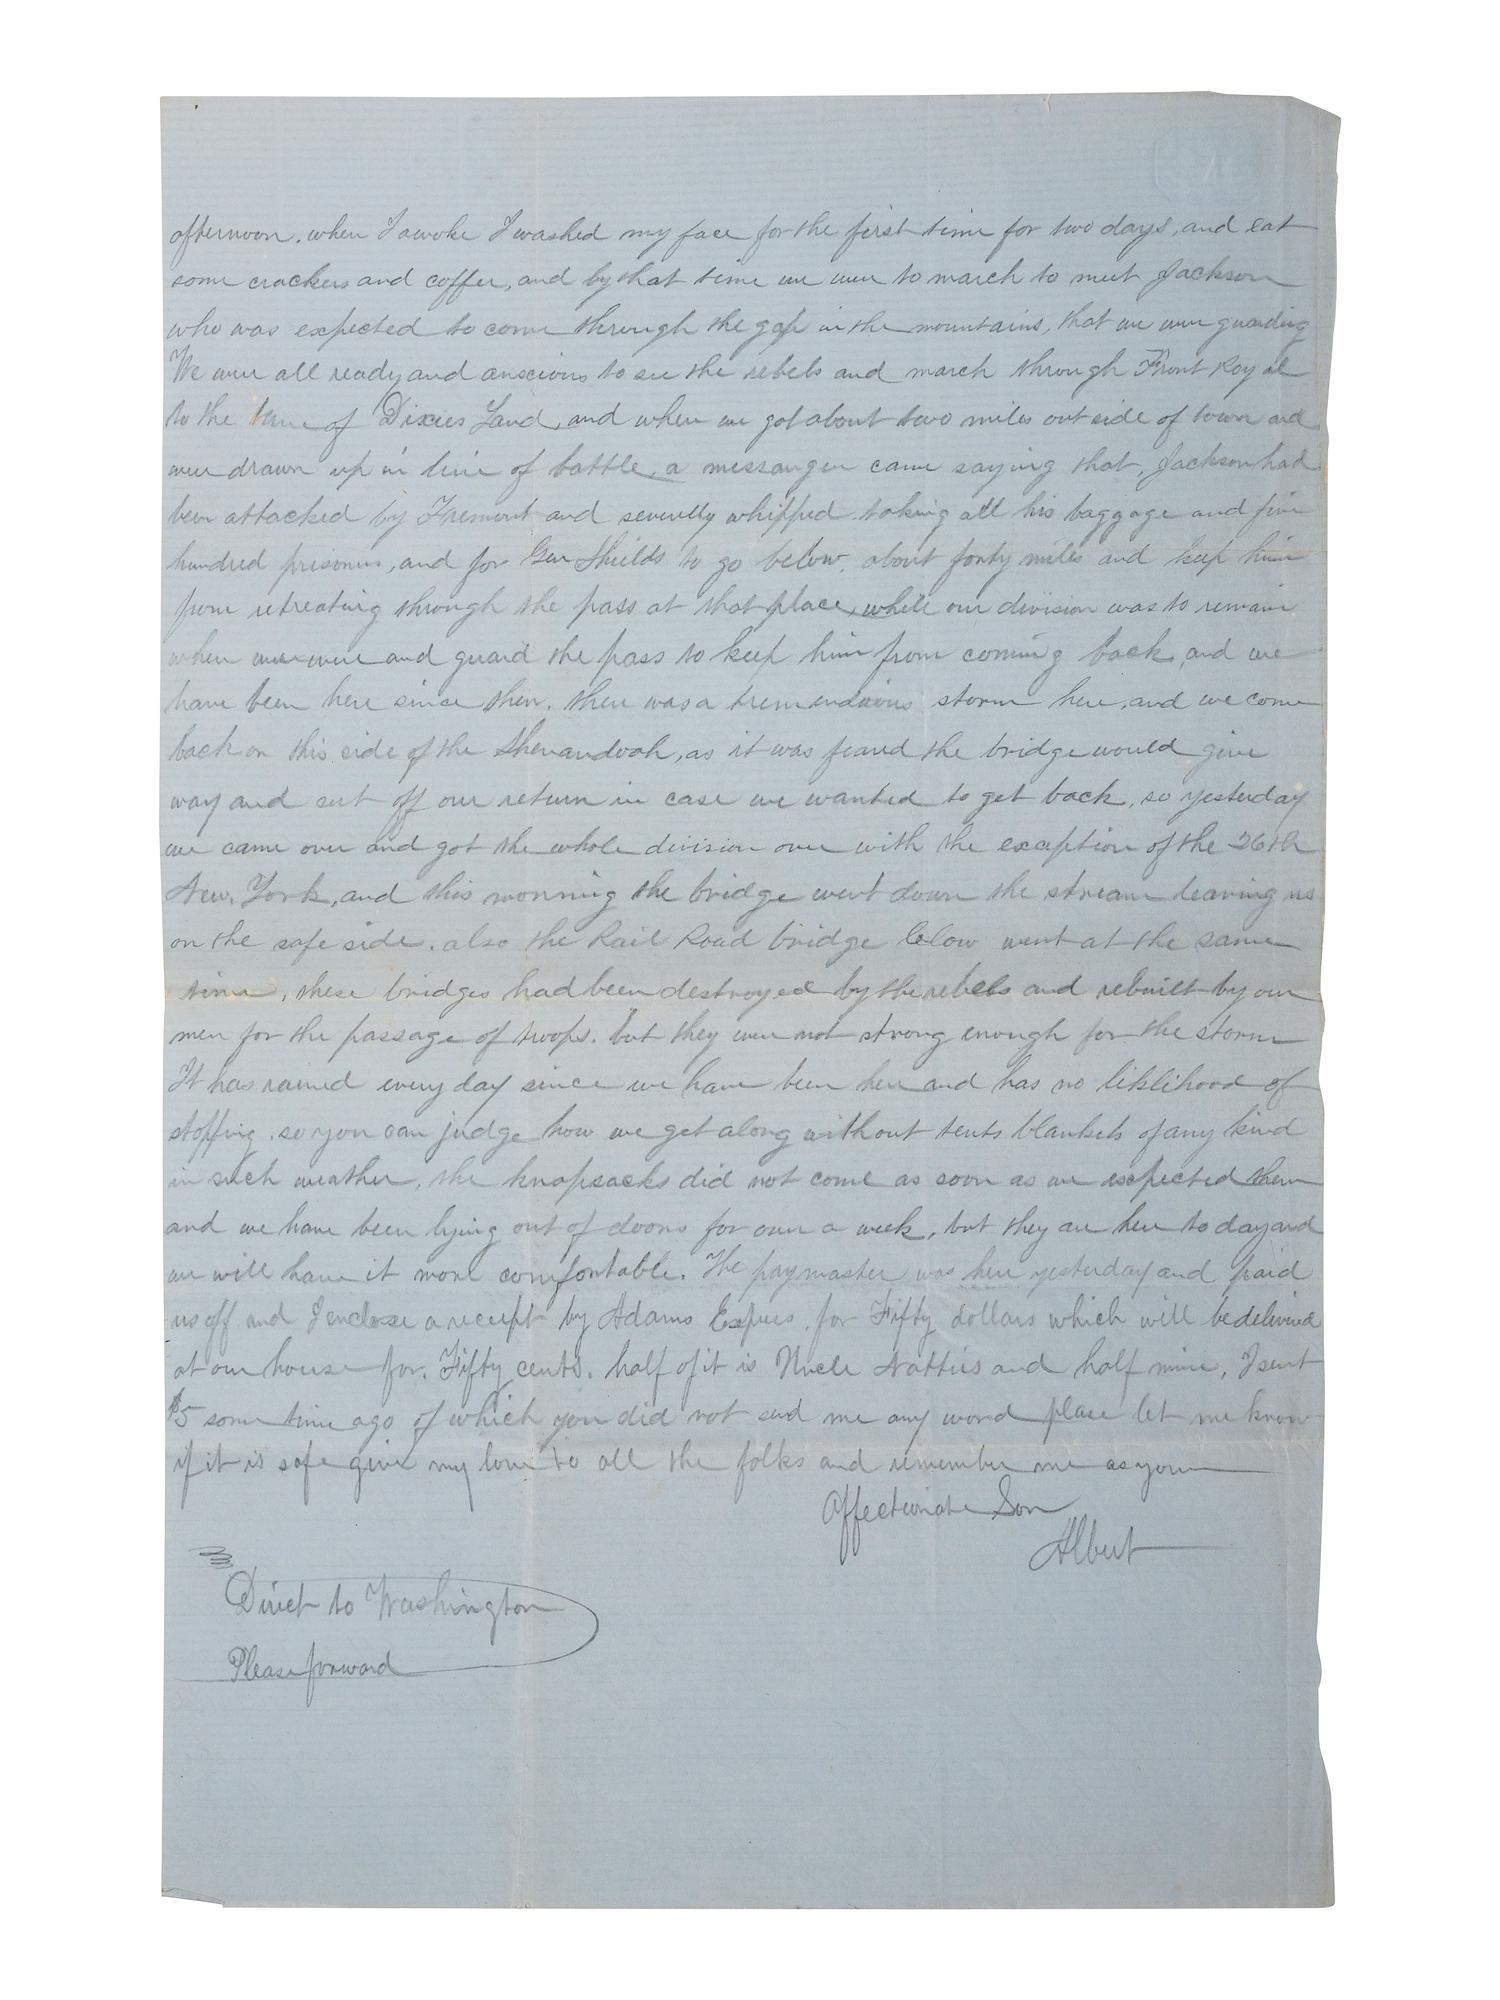 afternoon. when I awoke I washed my face for the first time for two days, and eat
some crackers and coffee, and by that time we were to march to meet Jackson
who was expected to come through the gap in the mountains, that we were guarding
We were all ready and anscious to see the rebels and march through Front Royal
to the tune of Dixies Land, and when we got about two miles outside of town and
were drawn up in line of battle, a messanger came saying that, Jackson had
been attacked by Fremont and severelly whipped. taking all his baggage and five
hundred prisoners, and for Gen Shields to go below. about forty miles and keep him
from retreating through the pass at that place, while our division was to remain
where we were and guard the pass to keep him from coming back, and we
have been here since then. there was a tremenduous storm here, and we come
back on this side of the Shenandoah, as it was feared the bridge would give
way and cut off our return in case we wanted to get back, so yesterday
we came over and got the whole division over with the exception of the 26th
New. York, and this morning the bridge went down the stream leaving us
on the safe side. also the Rail Road bridge below went at the same
time, these bridges had been destroyed by the rebels and rebuilt by our
men for the passage of troops. but they were not strong enough for the storm
It has rained every day since we have been here and has no liklihood of
stopping. so you can judge how we get along without tents blankets of any kind
in such weather, the knapsacks did not come as soon as we expected them
and we have been lying out of doors for over a week, but they are here to day and
we will have it more comfortable. The paymaster was here yesterday and paid
us off and I enclose a receipt by Adams Express. for Fifty dollars which will be delivered
at our house for. Fifty cents. half of it is Uncle Natties and half mine, I sent
$5 some time ago of which you did not send me any word please let me know
if it is safe give my love to all the folks and remember me as your
Affectionate Son
Albert
Direct to Washington
Please forward